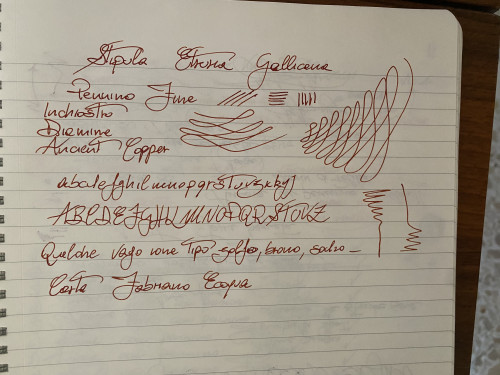 Stipula Etruria Gallicana
Pennino Fine
Inchiostro
Diamine
Ancient Copper
abcdefghilmnopqrstuvzxkyj
ABCDEFGHILMNOPQRSTUVZ
Qualche vago ione tipo solfo, bromo,
Carta Fabriano Ecoqua